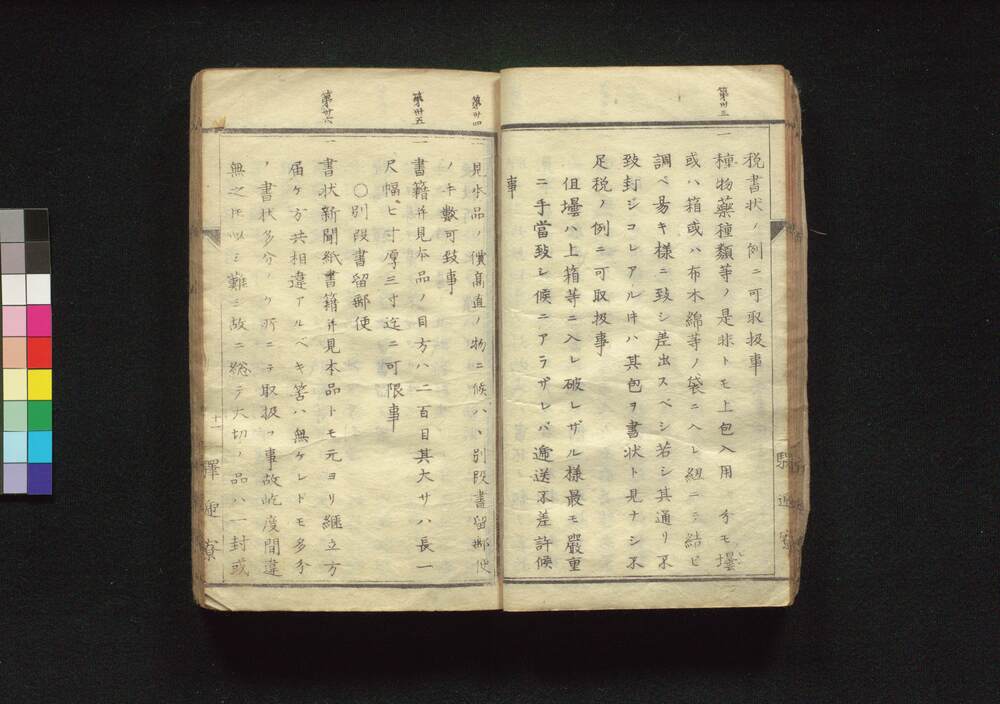 税書状ノ例ニ可取扱事
第卅三
一種物薬種類等ノ是非トモ上包入用ノ分モ壜
或ハ箱或ハ布木綿等ノ袋ニ入レ紐ニテ結ヒ
調ベ易キ様ニ致シ差出スベシ若シ其通リ不
致封シコレアル時ハ其包ヲ書状ト見ナシ不
足税ノ例ニ可取扱事
但壜ハ上箱等ニ入レ破レザル様最モ嚴重
ニ手當致レ候ニアラザレバ遞送不差許候
事
第卅四
一見本品ノ價高直ノ物ニ候ハヽ別段書留郵便
ノ手數可致事
第卅五
一書籍并見本品ノ目方ハ二百目其大サハ長一
尺幅七寸厚三寸迄ニ可限事
○別段書留郵便
第卅六
一書状新聞紙書籍并見本品トモ元ヨリ継立方
届ケ方共相違アルベキ筈ハ無ケレドモ多分
ノ書状多分ノケ所ニテ取扱フ事故屹度間違
無之𪜈以ニ難シ故ニ総テ大切ノ品ハ一封或
十一
驛逓寮